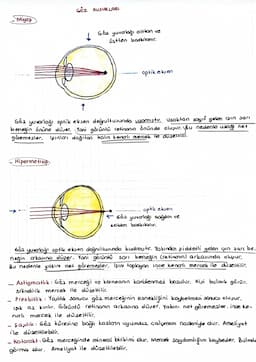 GÖZ KUSURLARI
- Miyop
Göz yuvarlağı sağdan ve
üstten basıktır.
optik eksen
Göz yuvarlağı optik eksen doğrultusunda uzamıştır. Uzaktan gelen ışın sarı
beneğin önüne düşer. Yani görüntü retinanın önünde oluşur. Bu nedenle uzağı net
göremezler. Işınları dağıtan kalın kenarlı mercek ile düzeltilir.
- Hipermetrop
optik eksen
Göz yuvarlağı sağdan ve
soldan basıktır.
Göz yuvarlağı optik eksen doğrultusunda kısalmıştır. Yakından şiddetli gelen ışın sarı be-
neğin arkasına düşer. Yani görüntü sarı beneğin (retinanın) arkasında oluşur.
Bu nedenle yakını net göremezler. Işın toplayan ince kenarlı mercek ile düzeltilir.
- Astigmatik: Göz merceği ve korneanın kavislenmesi kusurudur. Kişi bulanık görür.
Silindirik mercek ile düzeltilir.
- Presbitlik: Yaşlılık sonucu göz merceğinin esnekliğini kaybetmesi sonucu oluşur.
Işık az kırılır. Görüntü retinanın arkasına düşer. Yakını net göremezler. İnce ke-
narlı mercek ile düzeltilir.
- Şaşılık: Göz küresine bağlı kasların uyumsuz çalışması nedeniyle olur. Ameliyat
ile düzeltilebilir.
- Katarakt: Göz merceğinde mineral birikimi olur. Mercek saydamlığını kaybeder. Bulanık
görme olur. Ameliyat ile düzeltilebilir.